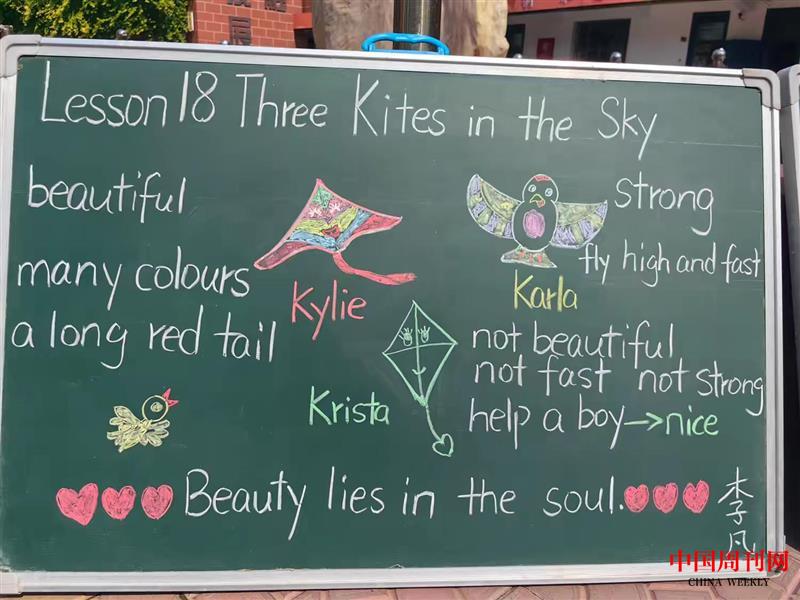 Lesson 18 Three Kites in the Sky
beautiful
many colours
a long red tail
Kylie
strong
fly high and fast
Karla
Krista
not beautiful
not fast not strong
help a boy→nice
Beauty lies in the soul.
李子凡
中国周刊网
CHINA WEEKLY